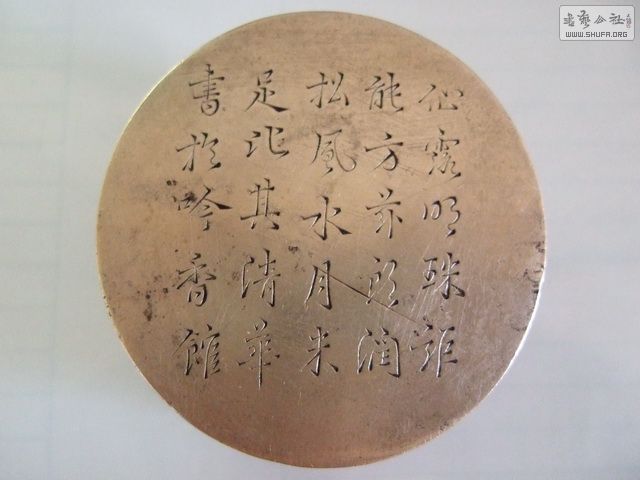 仙露明珠詎
能方茲朗潤
松風水月米
足比其清華
書於吟香館
書藝公社
WWW.SHUFA.ORG